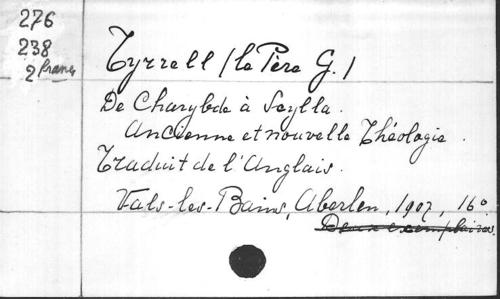 276
238
2 francs
Tyrrell (le Père G.)
De Charybde à Scylla.
Ancienne et nouvelle Théologie.
Traduit de l'Anglais.
Vals-les-Bains, Aberlen, 1907, 16°
Deux exemplaires.